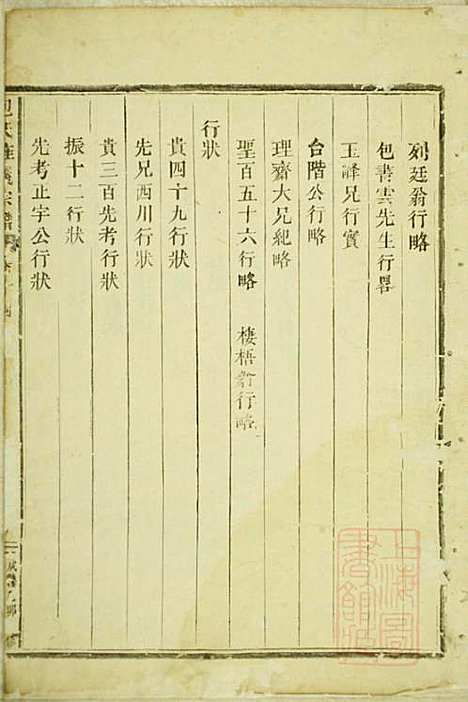 列廷翁行略
包書雲先生行畧
玉譯兄行實
台階公行略
理齋大兄紀略
聖百五十六行略 棲梧翁行略
行狀
貴四十九行狀
先兄西川行狀
貴三百先考行狀
振十二行狀
先考止字公行狀
包氏宗譜
上海圖書館藏